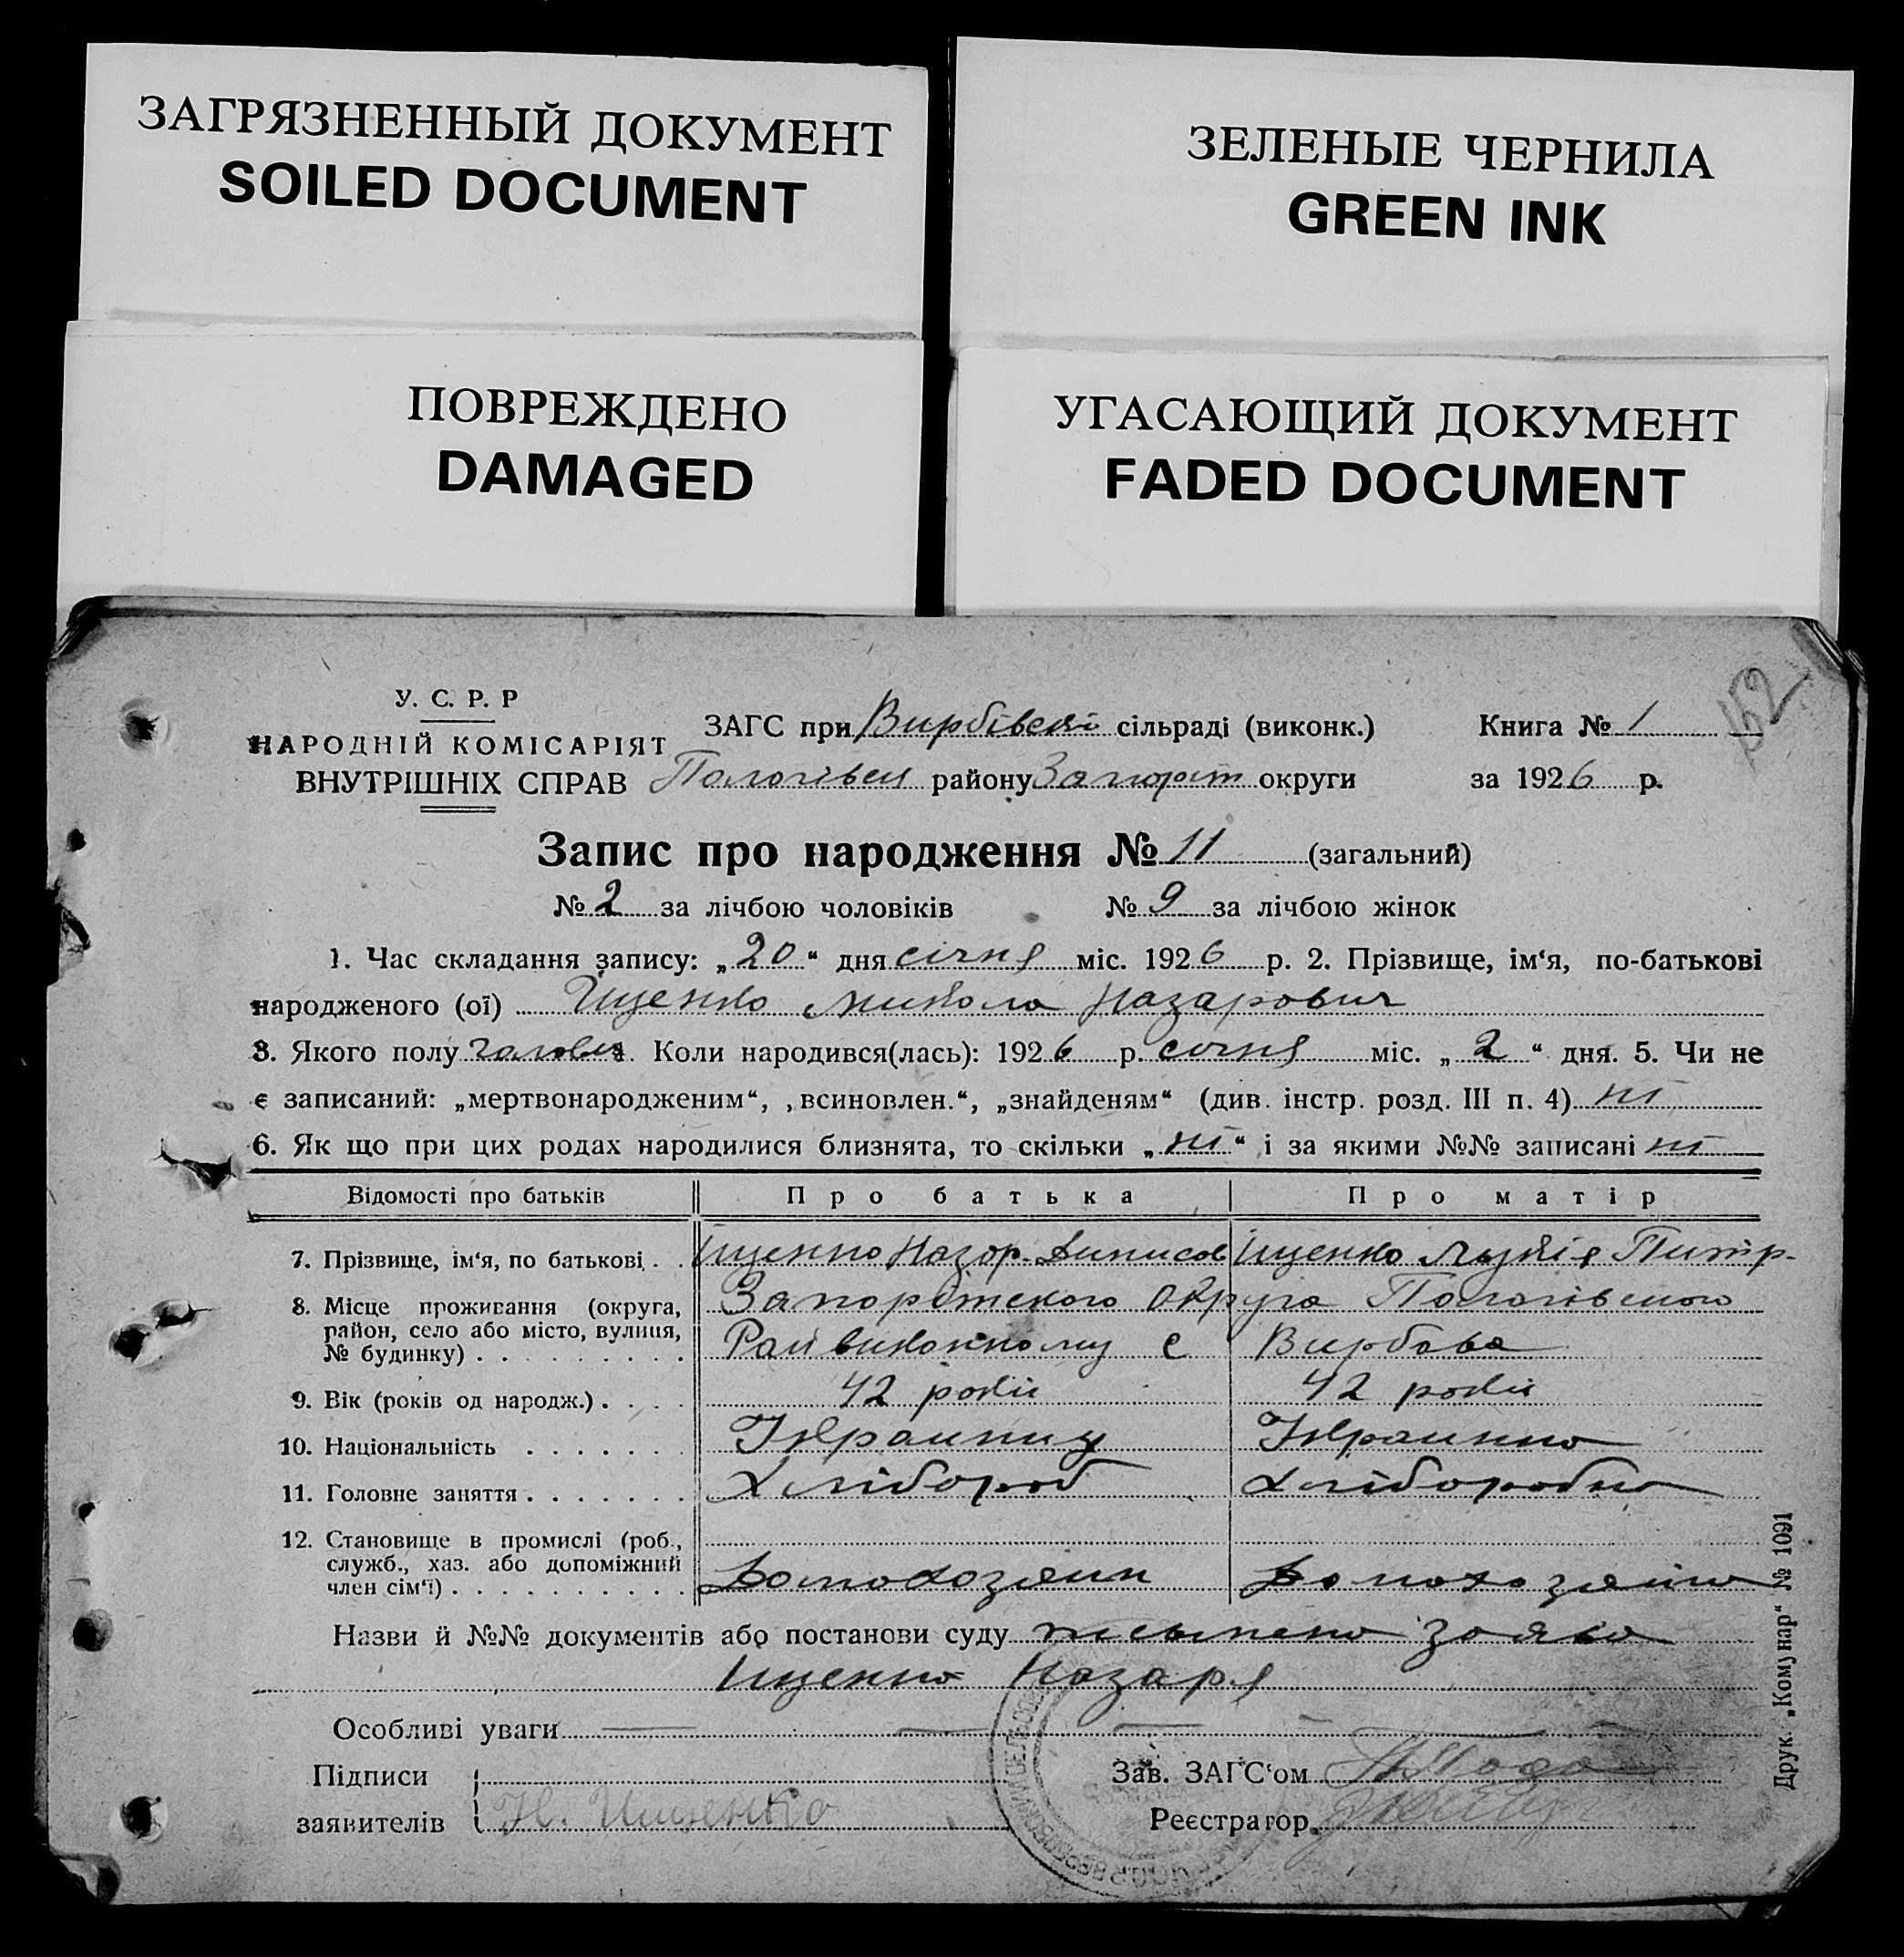 ЗАГРЯЗНЕННЫЙ ДОКУМЕНТ
SOILED DOCUMENT
ЗЕЛЕНЫЕ ЧЕРНИЛА
GREEN INK
ПОВРЕЖДЕНО
DAMAGED
УГАСАЮЩИЙ ДОКУМЕНТ
FADED DOCUMENT
152
У. С. Р. Р
НАРОДНІЙ КОМІСАРІЯТ
ВНУТРІШНІХ СПРАВ
ЗАГС при Вирбівскі сільраді (виконк.) Книга № 1
Пологівск району Запоріт округи за 1926 р.
Запис про народження № 11 (загальний)
№ 2 за лічбою чоловіків № 9 за лічбою жінок
1. Час складання запису: „20“ дня січня міс. 1926 р. 2. Прізвище, ім‘я, по-батькові
народженого (ої) Ищенко Микола Назарович
3. Якого полу Коли народився(лась): 1926 р. січня міс. „2“ дня. 5. Чи не
є записаний: „мертвонародженим“, „всиновлен.“, „знайденям“ (див. інстр. розд. III п. 4) ні
6. Як що при цих родах народилися близнята, то скільки „ні“ і за якими №№ записані ні
Відомості про батьків Про батька Про матір
7. Прізвище, ім‘я, по батькові . . Ищенко Назар. Динисов Ищенко Питр.
8. Місце проживання (округа, Запорітского округа Пологівского
район, село або місто, вулиця, Райвиконкому с Вирбова
№ будинку) . . . . . . . . .
9. Вік (років од народж.) . . . . 42 років 42 років
10. Національність . . . . . . . Украиниц Украинка
11. Головне заняття . . . . . . . Хлібороб Хліборобка
12. Становище в промислі (роб.,
служб., хаз. або допоміжний Домохозяин Домохозяйка
член сім‘ї) . . . . . . . . . .
Назви й №№ документів або постанови суду заява
Ищенко Назара
Особливі уваги — — — —
Підписи Зав. ЗАГС‘ом
заявителів Н. Ищенко Реєстратор
Друк. „Комунар“ № 1091